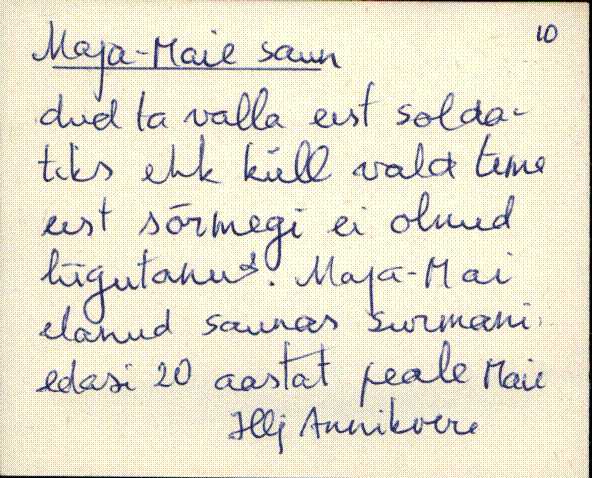 10
Maja-Maie saun
dud ta valla eest solda-
tiks ehk küll vald teme
eest sõrmegi ei olnud
liigutanud. Maja-Mai
elanud saunas surmani
edasi 20 aastat peale Maie
Annikvere